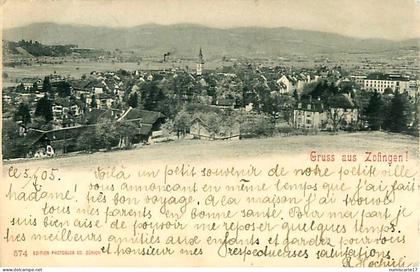 Gruss aus Zofingen!
6.5.05. Voilà un petit souvenir de notre petit ville
Madame! vous annonçant en même temps que j'ai fait
très bon voyage. A la maison j'ai trouvé
tous mes parents en bonne santé. Pour ma part je
suis bien aise de pouvoir me reposer quelques jours.
mes meilleures amitiés aux enfants et gardez pour vous
et monsieur mes respectueuses salutations
574 EDITION PHOTOGLOB CO. ZÜRICH